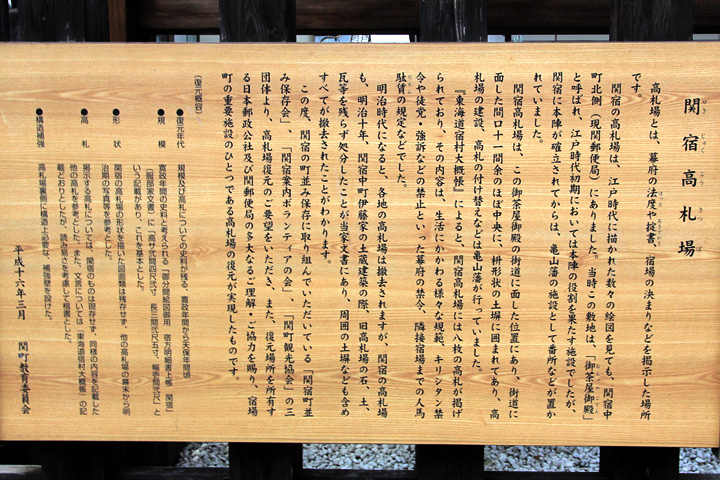 関宿高札場
せき じゅく こう さつ ば
高札場とは、幕府の法度や掟書、宿場の決まりなどを掲示した場所
です。
関宿の高札場は、江戸時代に描かれた数々の絵図を見ても、関宿中
町北側（現関郵便局）にありました。当時この敷地は、「御茶屋御殿」
と呼ばれ、江戸時代初期においては本陣の役割を果たす施設でしたが、
関宿に本陣が確立されてからは、亀山藩の施設として番所などが置か
れていました。
関宿高札場は、この御茶屋御殿の街道に面した位置にあり、街道に
面した間口十一間余のほぼ中央に、枡形状の土塀に囲まれてあり、高
札場の建設、高札の付け替えなどは亀山藩が行っていました。
『東海道宿村大概帳』によると、関宿高札場には八枚の高札が掲げ
られており、その内容は、生活にかかわる様々な規範、キリシタン禁
令や徒党・強訴などの禁止といった幕府の禁令、隣接宿場までの人馬
駄賃の規定などでした。
明治時代になると、各地の高札場は撤去されますが、関宿の高札場
も、明治十年、関宿中町伊藤家の土蔵建築の際、旧高札場の石、土、
瓦等を残らず処分したことが当家文書にあり、周囲の土塀なども含め
すべてが撤去されたことがわかります。
この度、関宿の町並み保存に取り組んでいただいている「関宿町並
み保存会」、「関宿案内ボランティアの会」、「関町観光協会」の三
団体より、高札場復元のご要望をいただき、また、復元場所を所有す
る日本郵政公社及び関郵便局の多大なるご理解・ご協力を賜り、宿場
町の重要施設のひとつである高札場の復元が実現したものです。
（復元概要）
●復元年代　規模及び高札についての史料が残る、寛政年間から天保年間頃
●規　模　寛政年間の史料と考えられる「御分間絵図御用　宿方明細書上帳　関宿」
（服部家文書）に「高サ弐間四尺弐寸　長三間壱尺五寸、幅壱間弐尺」と
いう記載があり、これを基本とした。
●形　状　関宿の高札場の形状を描いた図面類は残存せず、他の高札場の幕末から明
治期の写真等を参考とした。
●高　札　掲示する高札については、関宿のものは現存せず、同様の内容を記載した
他の高札を参考とした。また、文言については「東海道宿村大概帳」の記
載どおりとしたが、読み易さを考慮して楷書とした。
●構造補強　高札場裏側に構造上必要な、補強壁を設けた。
平成十六年三月
関町教育委員会